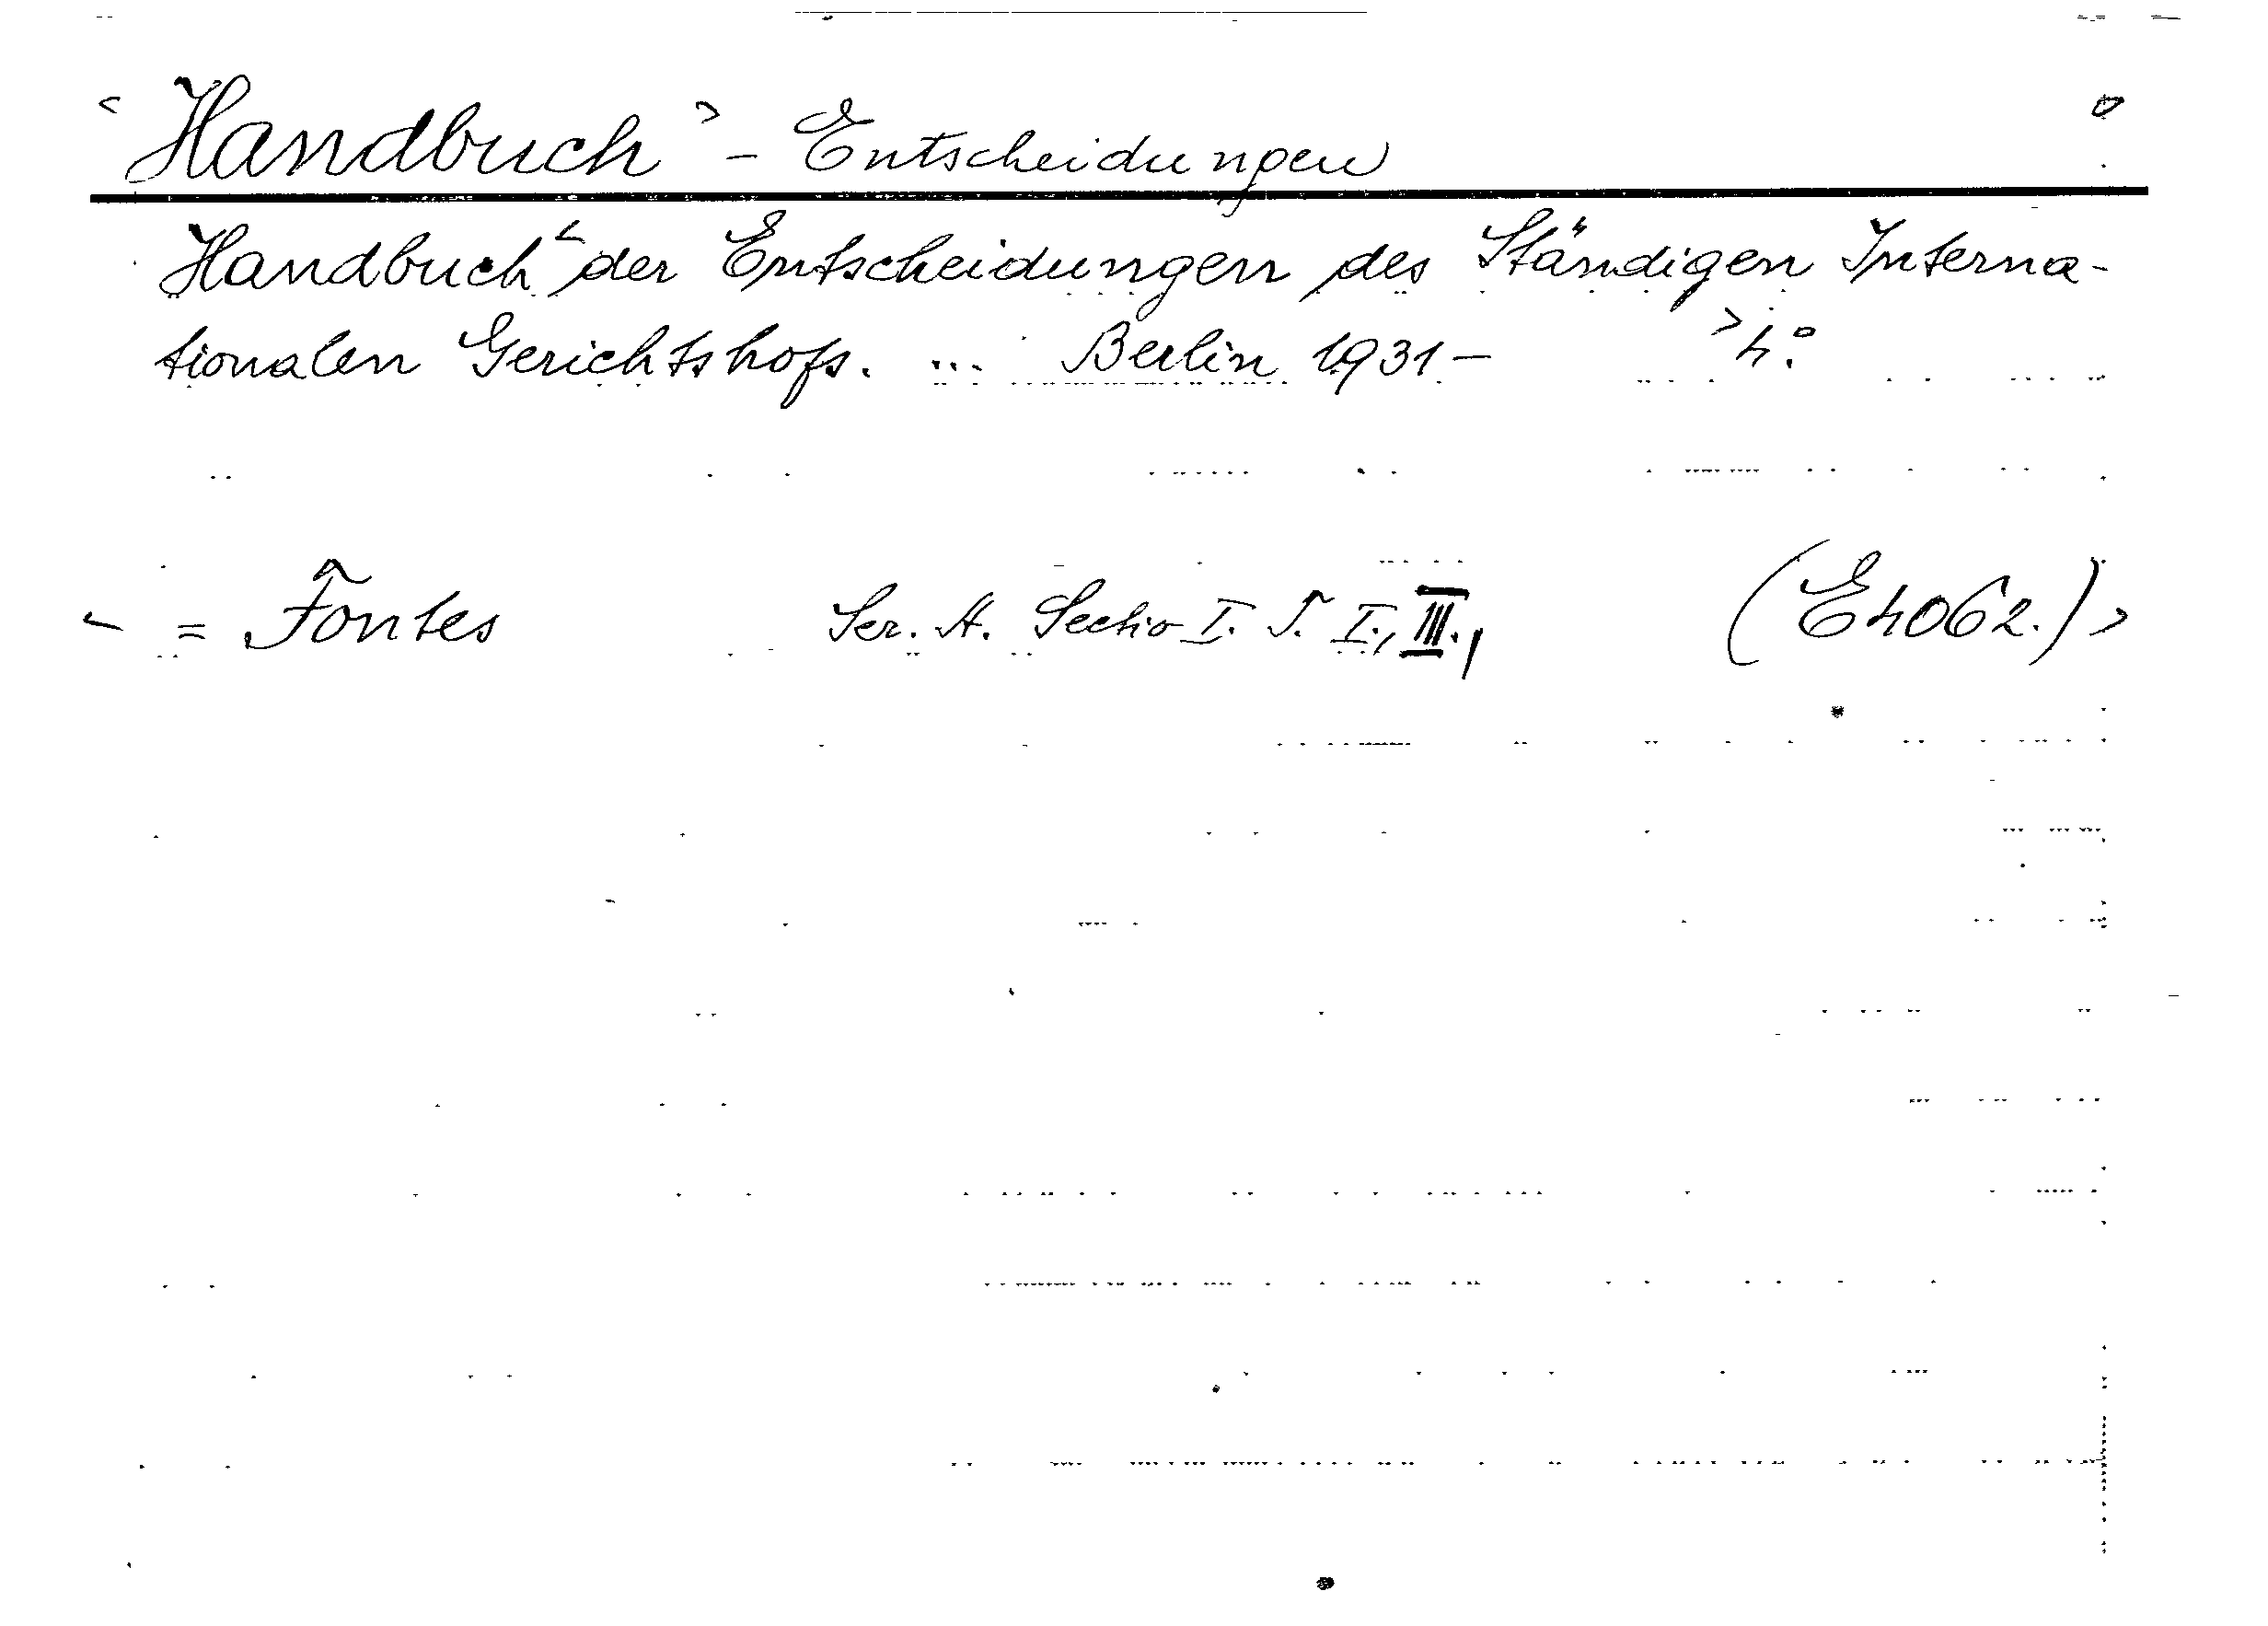 < Handbuch > - Entscheidungen
Handbuch < der Entscheidungen des Ständigen Interna-
tionalen Gerichtshofs. ... Berlin 1931- > 4°.
< = Fontes Ser. A. Sectio I. T. I., III., (E4062.) >